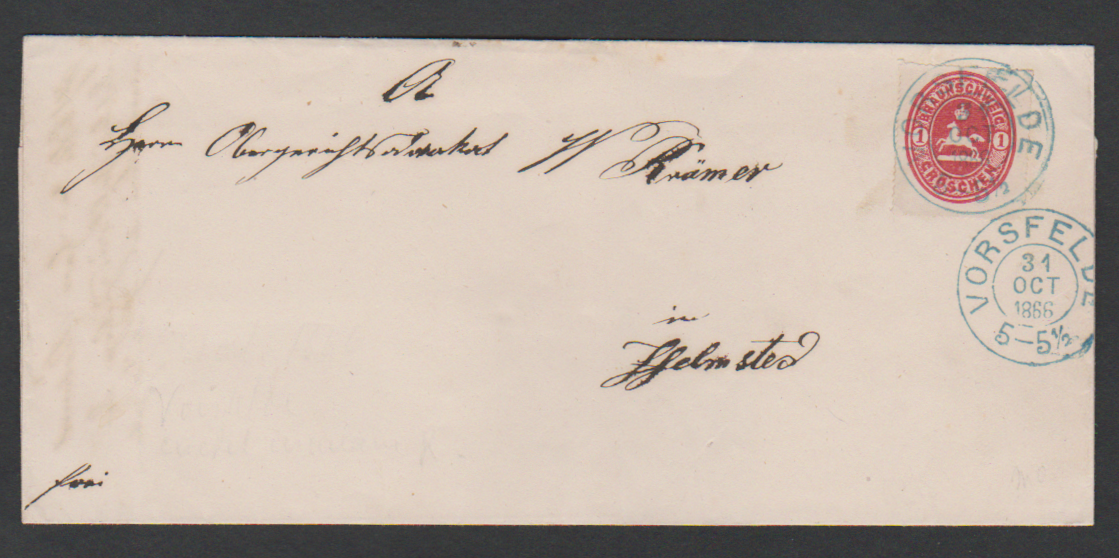 A
Herrn Obergerichtsadvokat W Krämer
in
Helmsted
frei
BRAUNSCHWEIG
1 1
GROSCHEN
VORSFELDE
31
OCT
1866
5-5½